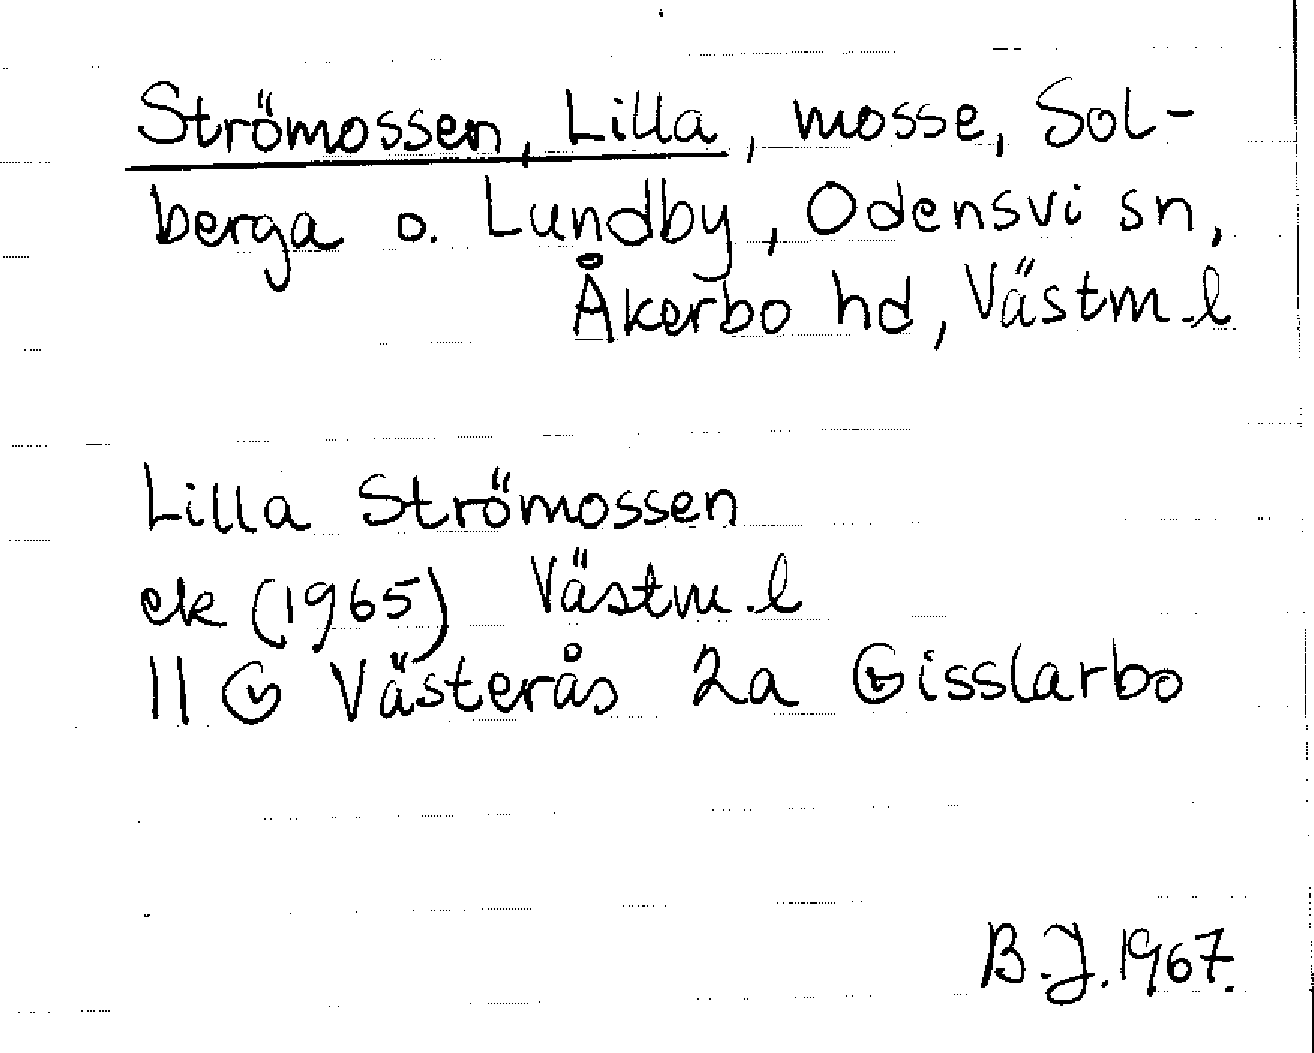 Strömossen, Lilla, mosse, Sol-
berga o. Lundby, Odensvi sn,
Åkerbo hd, Västm.l
Lilla Strömossen
ek (1965) Västm.l
11 G Västerås 2a Gisslarbo
B.J. 1967.